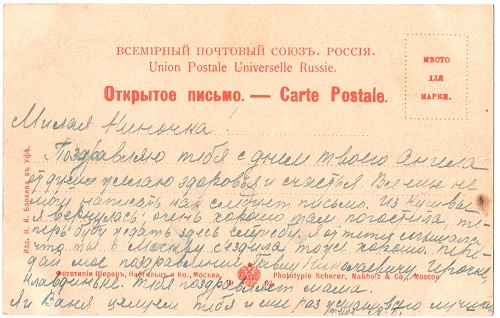 ВСЕМІРНЫЙ ПОЧТОВЫЙ СОЮЗЪ. РОССІЯ.
Union Postale Universelle Russie.
Открытое письмо. — Carte Postale.
МѢСТО
ДЛЯ
МАРКИ.
Милая Ниночка!
Поздравляю тебя с днем твоего Ангела
от души желаю здоровья и счастья. Все еще не
могу написать как следует письмо. Из
я вернулась, очень хорошо там погостила, те-
перь буду ждать здесь я от тети слышала
что ты в Москву съездила тоже хорошо. Пере-
дай мое поздравление Николаевичу
тебя поздравляет мама.
Я и Ваня целуем тебя и еще раз лучшаго
Изд. Н. К. Блохина, въ Уфѣ.
Фототипія Шереръ, Набгольцъ и Ко., Москва,
Phototypie Scherer, Nabholz & Co., Moscou